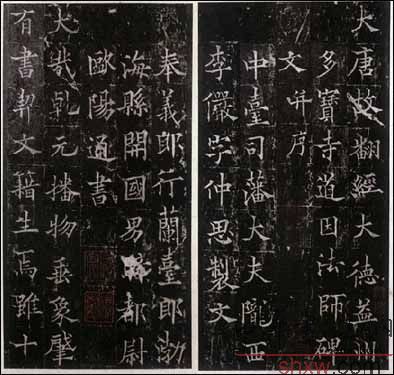 大唐故翻經大德益州
多寶寺道因法師碑
文并序
中臺司藩大夫隴西
李儼字仲思製文
奉義郎行蘭臺郎渤
海縣開國男騎都尉
歐陽通書
大哉乾元播物垂象肇
有書契文籍生焉雖十
shxw.com